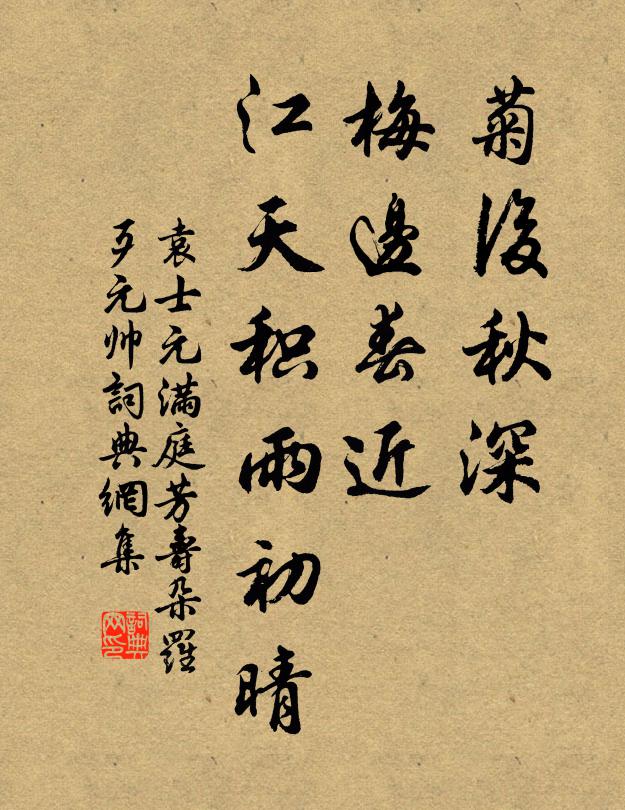 菊後秋深
梅邊春近
江天积雨初晴
袁士元滿庭芳壽朵羅
歹元帅詞典網集
詞典网印